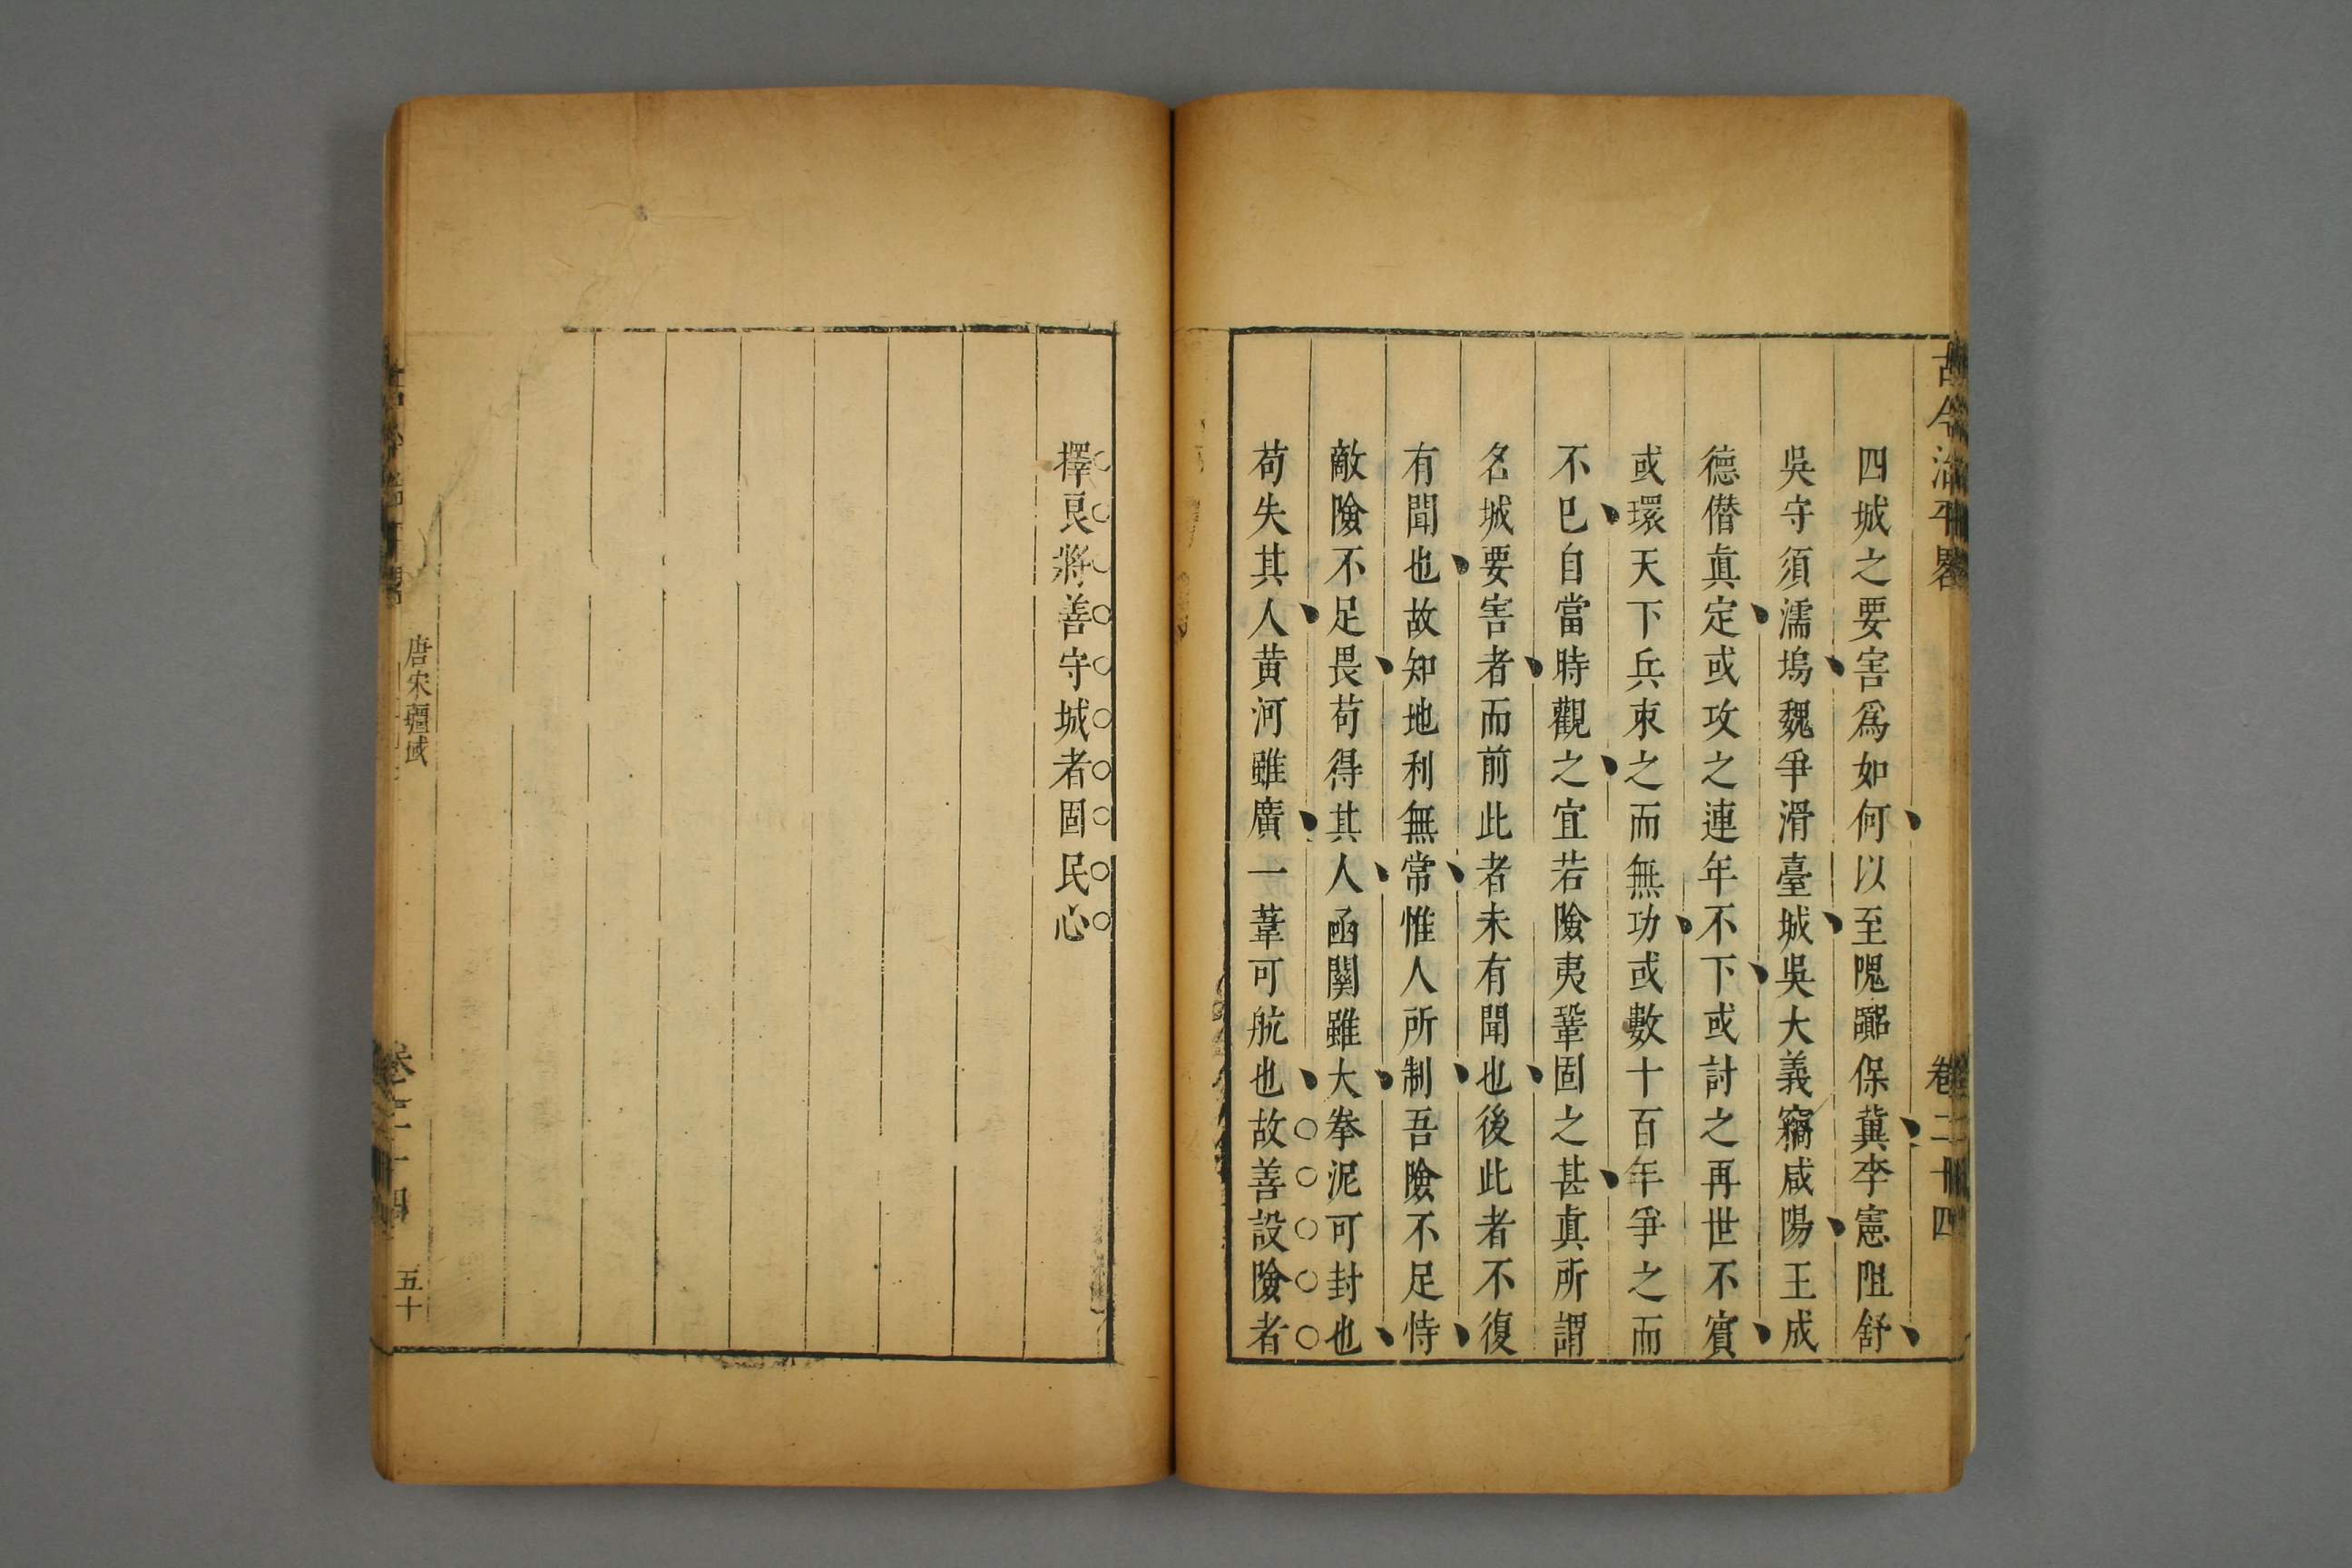 古今治平畧 卷二十四
四城之要害爲如何以至隗囂保冀李憲阻舒
吳守須濡塢魏爭滑臺城吳大義竊咸陽王成
德僭眞定或攻之連年不下或討之再世不賓
或環天下兵朿之而無功或數十百年爭之而
不巳自當時觀之宜若險夷鞏固之甚眞所謂
名城要害者而前此者未有聞也後此者不復
有聞也故知地利無常惟人所制吾險不足恃
敵險不足畏苟得其人函關雖大拳泥可封也
苟失其人黄河雖廣一葦可航也故善設險者
擇良將善守城者固民心
唐宋疆域
卷二十四 五十